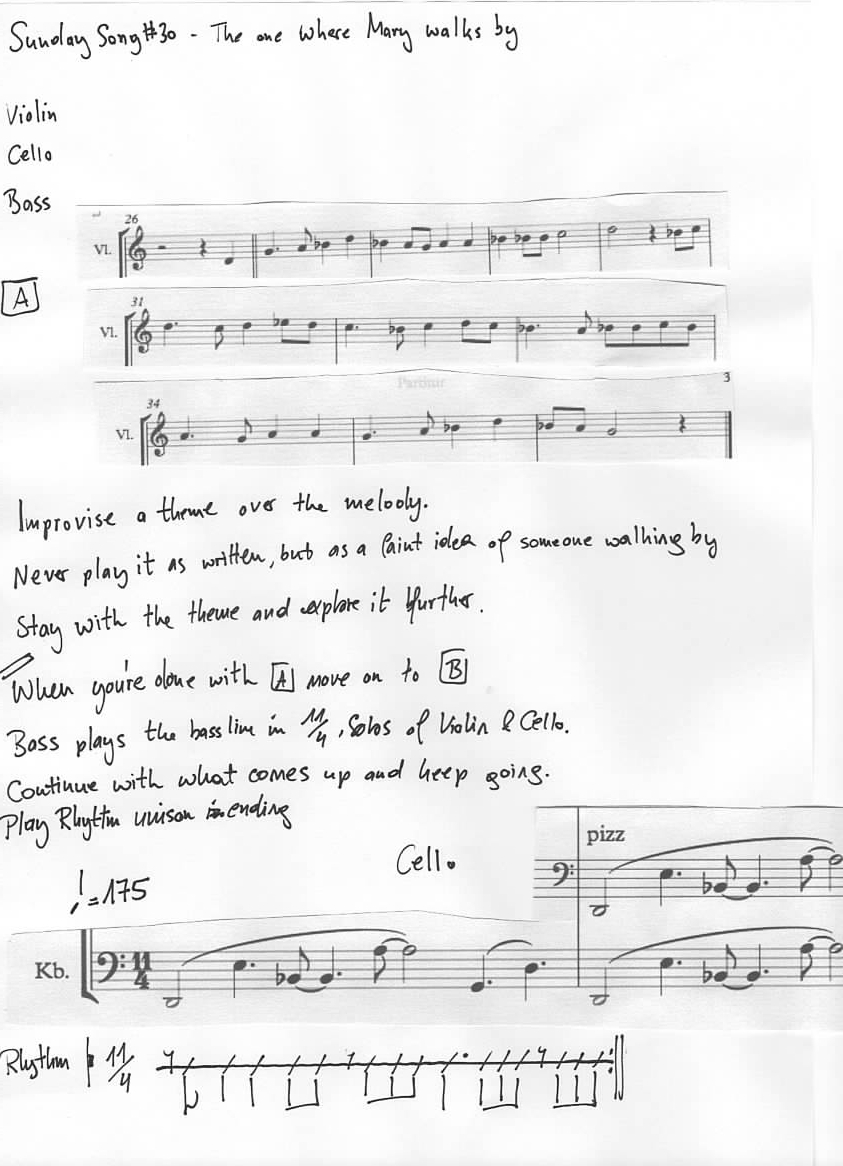 Sunday Song #30 - The one where Mary walks by
Violin
Cello
Bass
26
Vl.
A
31
Vl.
Partitur
3
34
Vl.
Improvise a theme over the melody.
Never play it as written, but as a faint idea of someone walking by
Stay with the theme and explore it further.
When you're done with A move on to B
Bass plays the bassline in 11/4, Solos of Violin & Cello.
Continue with what comes up and keep going.
Play Rhythm unison in ending
Cello
pizz
♩=175
Kb.
11/4
Rhythm 11/4